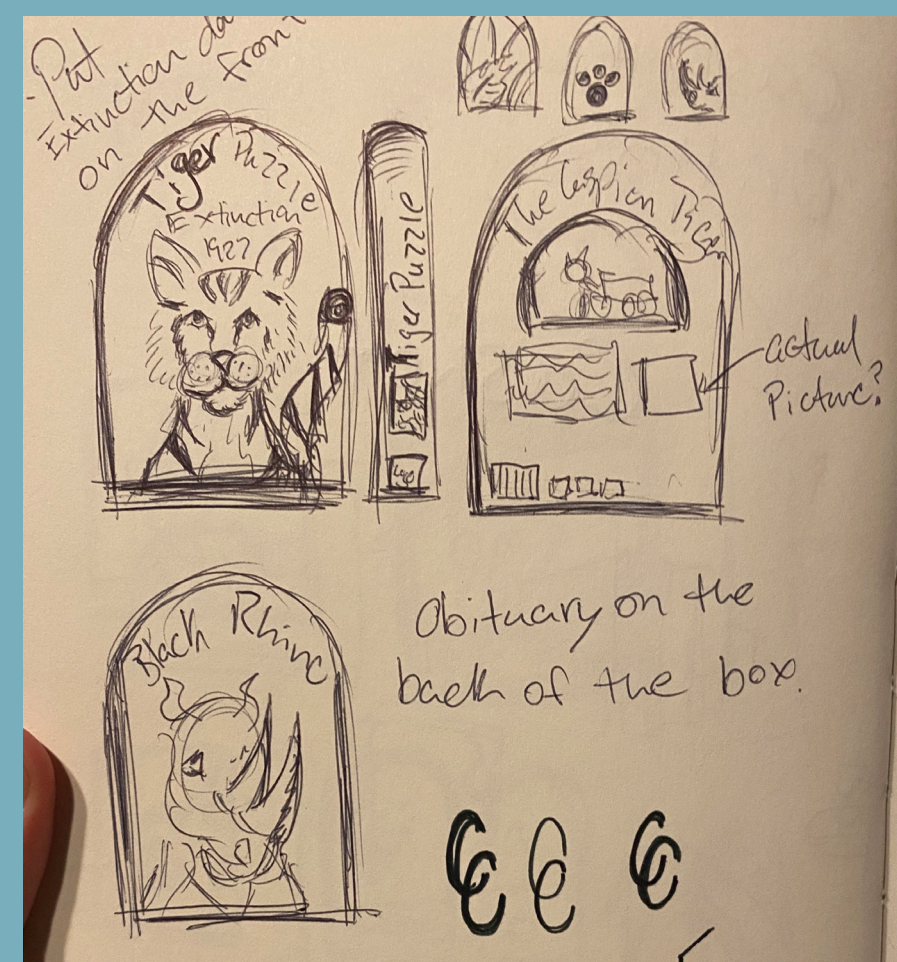 -Put
Extinction da
on the front
Tiger Puzzle
Extinction
1927
Tiger Puzzle
The Caspian Tiger
actual
Picture?
Black Rhino
Obituary on the
back of the box.
CC CC CC